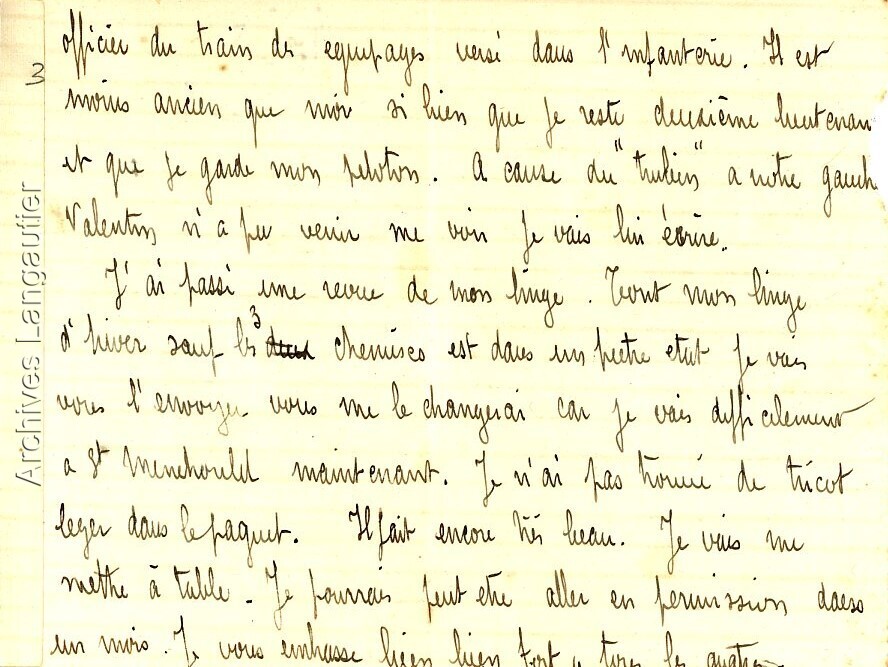 officier du train des equipages versé dans l'infanterie. Il est
3
moins ancien que moi si bien que je reste deuxième lieutenan
et que je garde mon peloton. A cause du "tubin" a notre gauch
Valentin n'a pu venir me voir je vais lui écrire.
J'ai passé une revue de mon linge. Tout mon linge
d'hiver sauf les 3 chemises est dans un piètre etat je vais
vous l'envoyer vous me le changerai car je vais difficilement
a St Menehould maintenant. Je n'ai pas trouvé de tricot
leger dans le paquet. Il fait encore très beau. Je vais me
mettre à table _ Je pourrais peut etre aller en permission dans
un mois. Je vous embrasse bien bien fort tous les autres
Archives Langautier